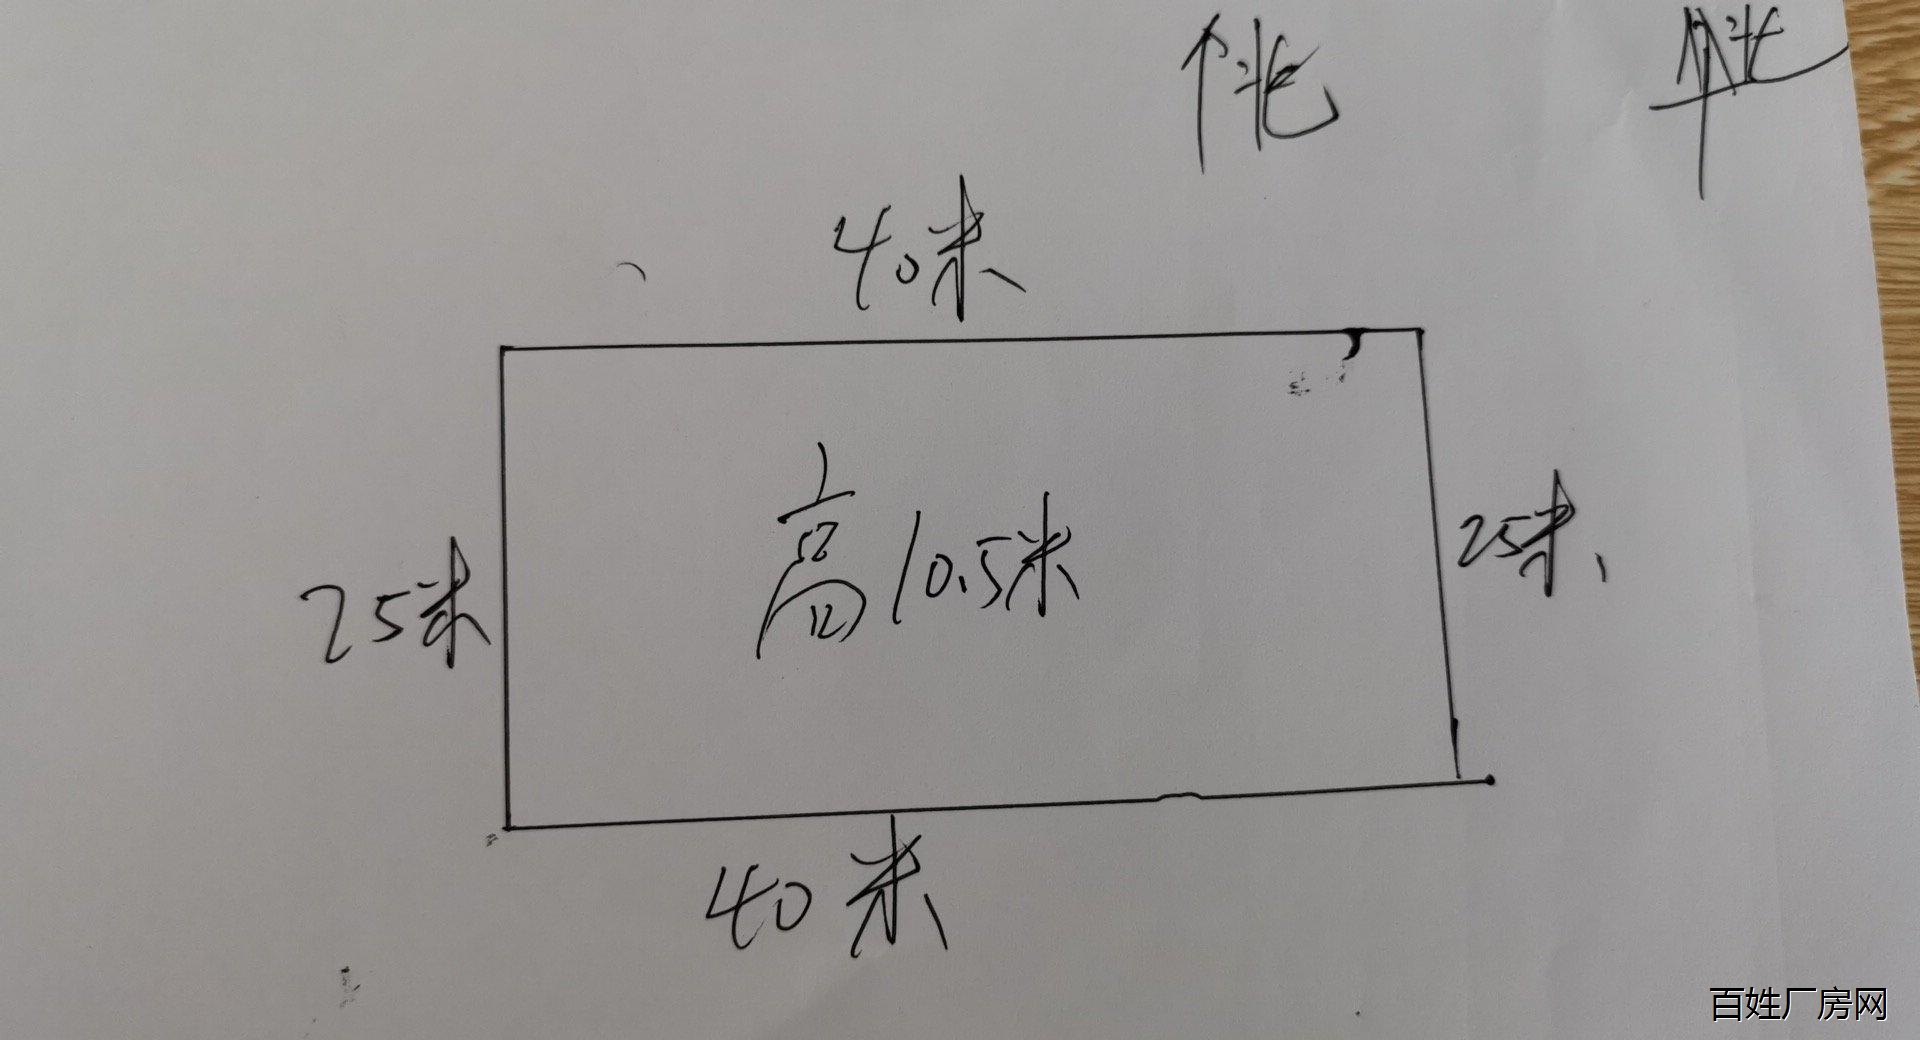 40米
25米
高10.5米
25米
40米
百姓厂房网